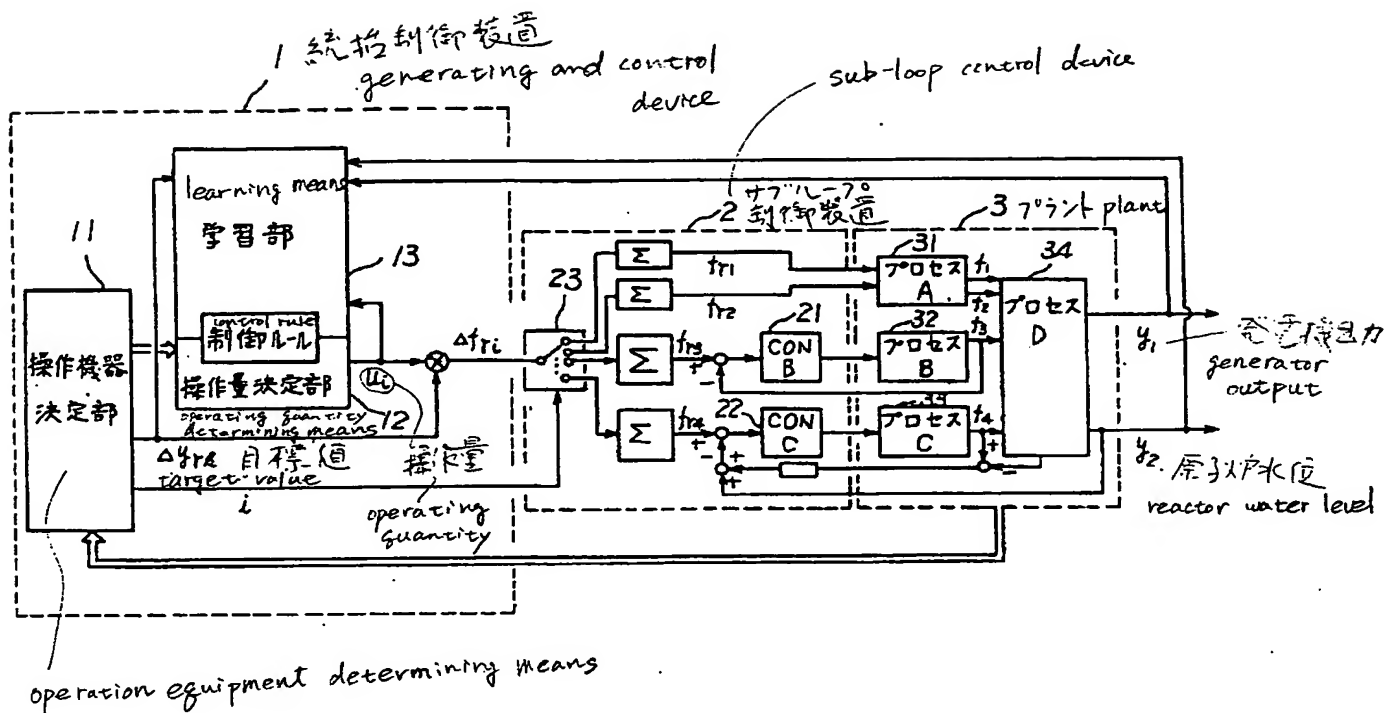 1 統括制御装置
generating and control
device
sub-loop control device
learning means
学習部
13
11
操作機器
決定部
control rule
制御ルール
操作量決定部
12
operating quantity
determining means
Δyri 目標値
target value
i
ui
操作量
operating
quantity
Δfri
23
サブループ
2 制御装置
Σ
fr1
Σ
fr2
Σ
fr3
+
-
21
CON
B
Σ
fr4
+
-
22
CON
C
+
+
3 プラント plant
31
プロセス
A
f1
f2
32
プロセス
B
f3
プロセス
C
f4
+
-
34
プロセス
D
y1
発電機出力
generator
output
y2
原子炉水位
reactor water level
operation equipment determining means